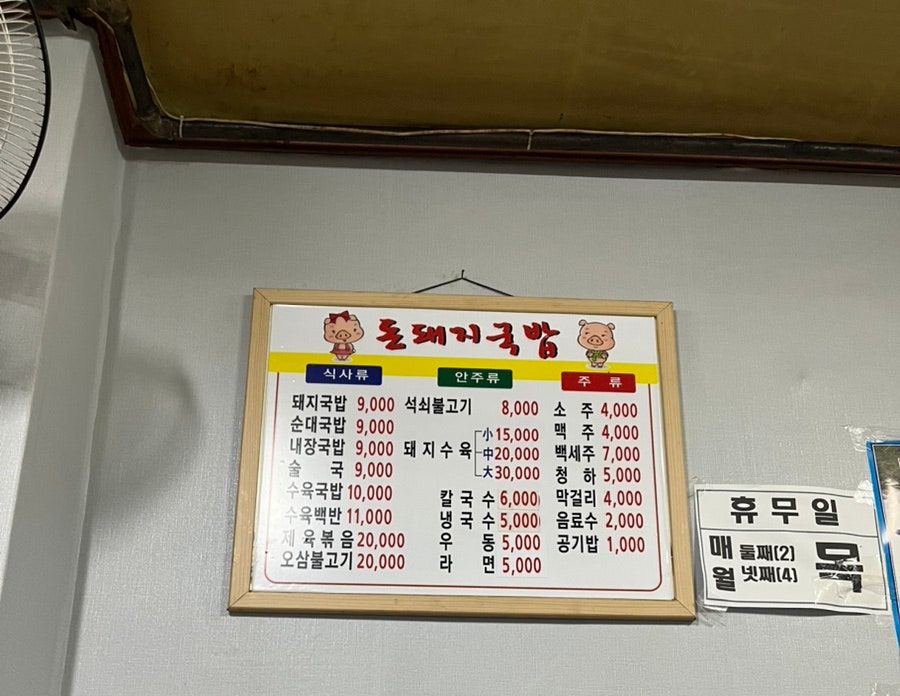 돈돼지국밥
식사류
돼지국밥 9,000
순대국밥 9,000
내장국밥 9,000
술 국 9,000
수육국밥 10,000
수육백반 11,000
제육볶음 20,000
오삼불고기 20,000
안주류
석쇠불고기 8,000
돼지수육 小 15,000
中 20,000
大 30,000
칼국수 6,000
냉국수 5,000
우 동 5,000
라 면 5,000
주 류
소 주 4,000
맥 주 4,000
백세주 7,000
청 하 5,000
막걸리 4,000
음료수 2,000
공기밥 1,000
휴무일
매월 둘째(2) 넷째(4) 목